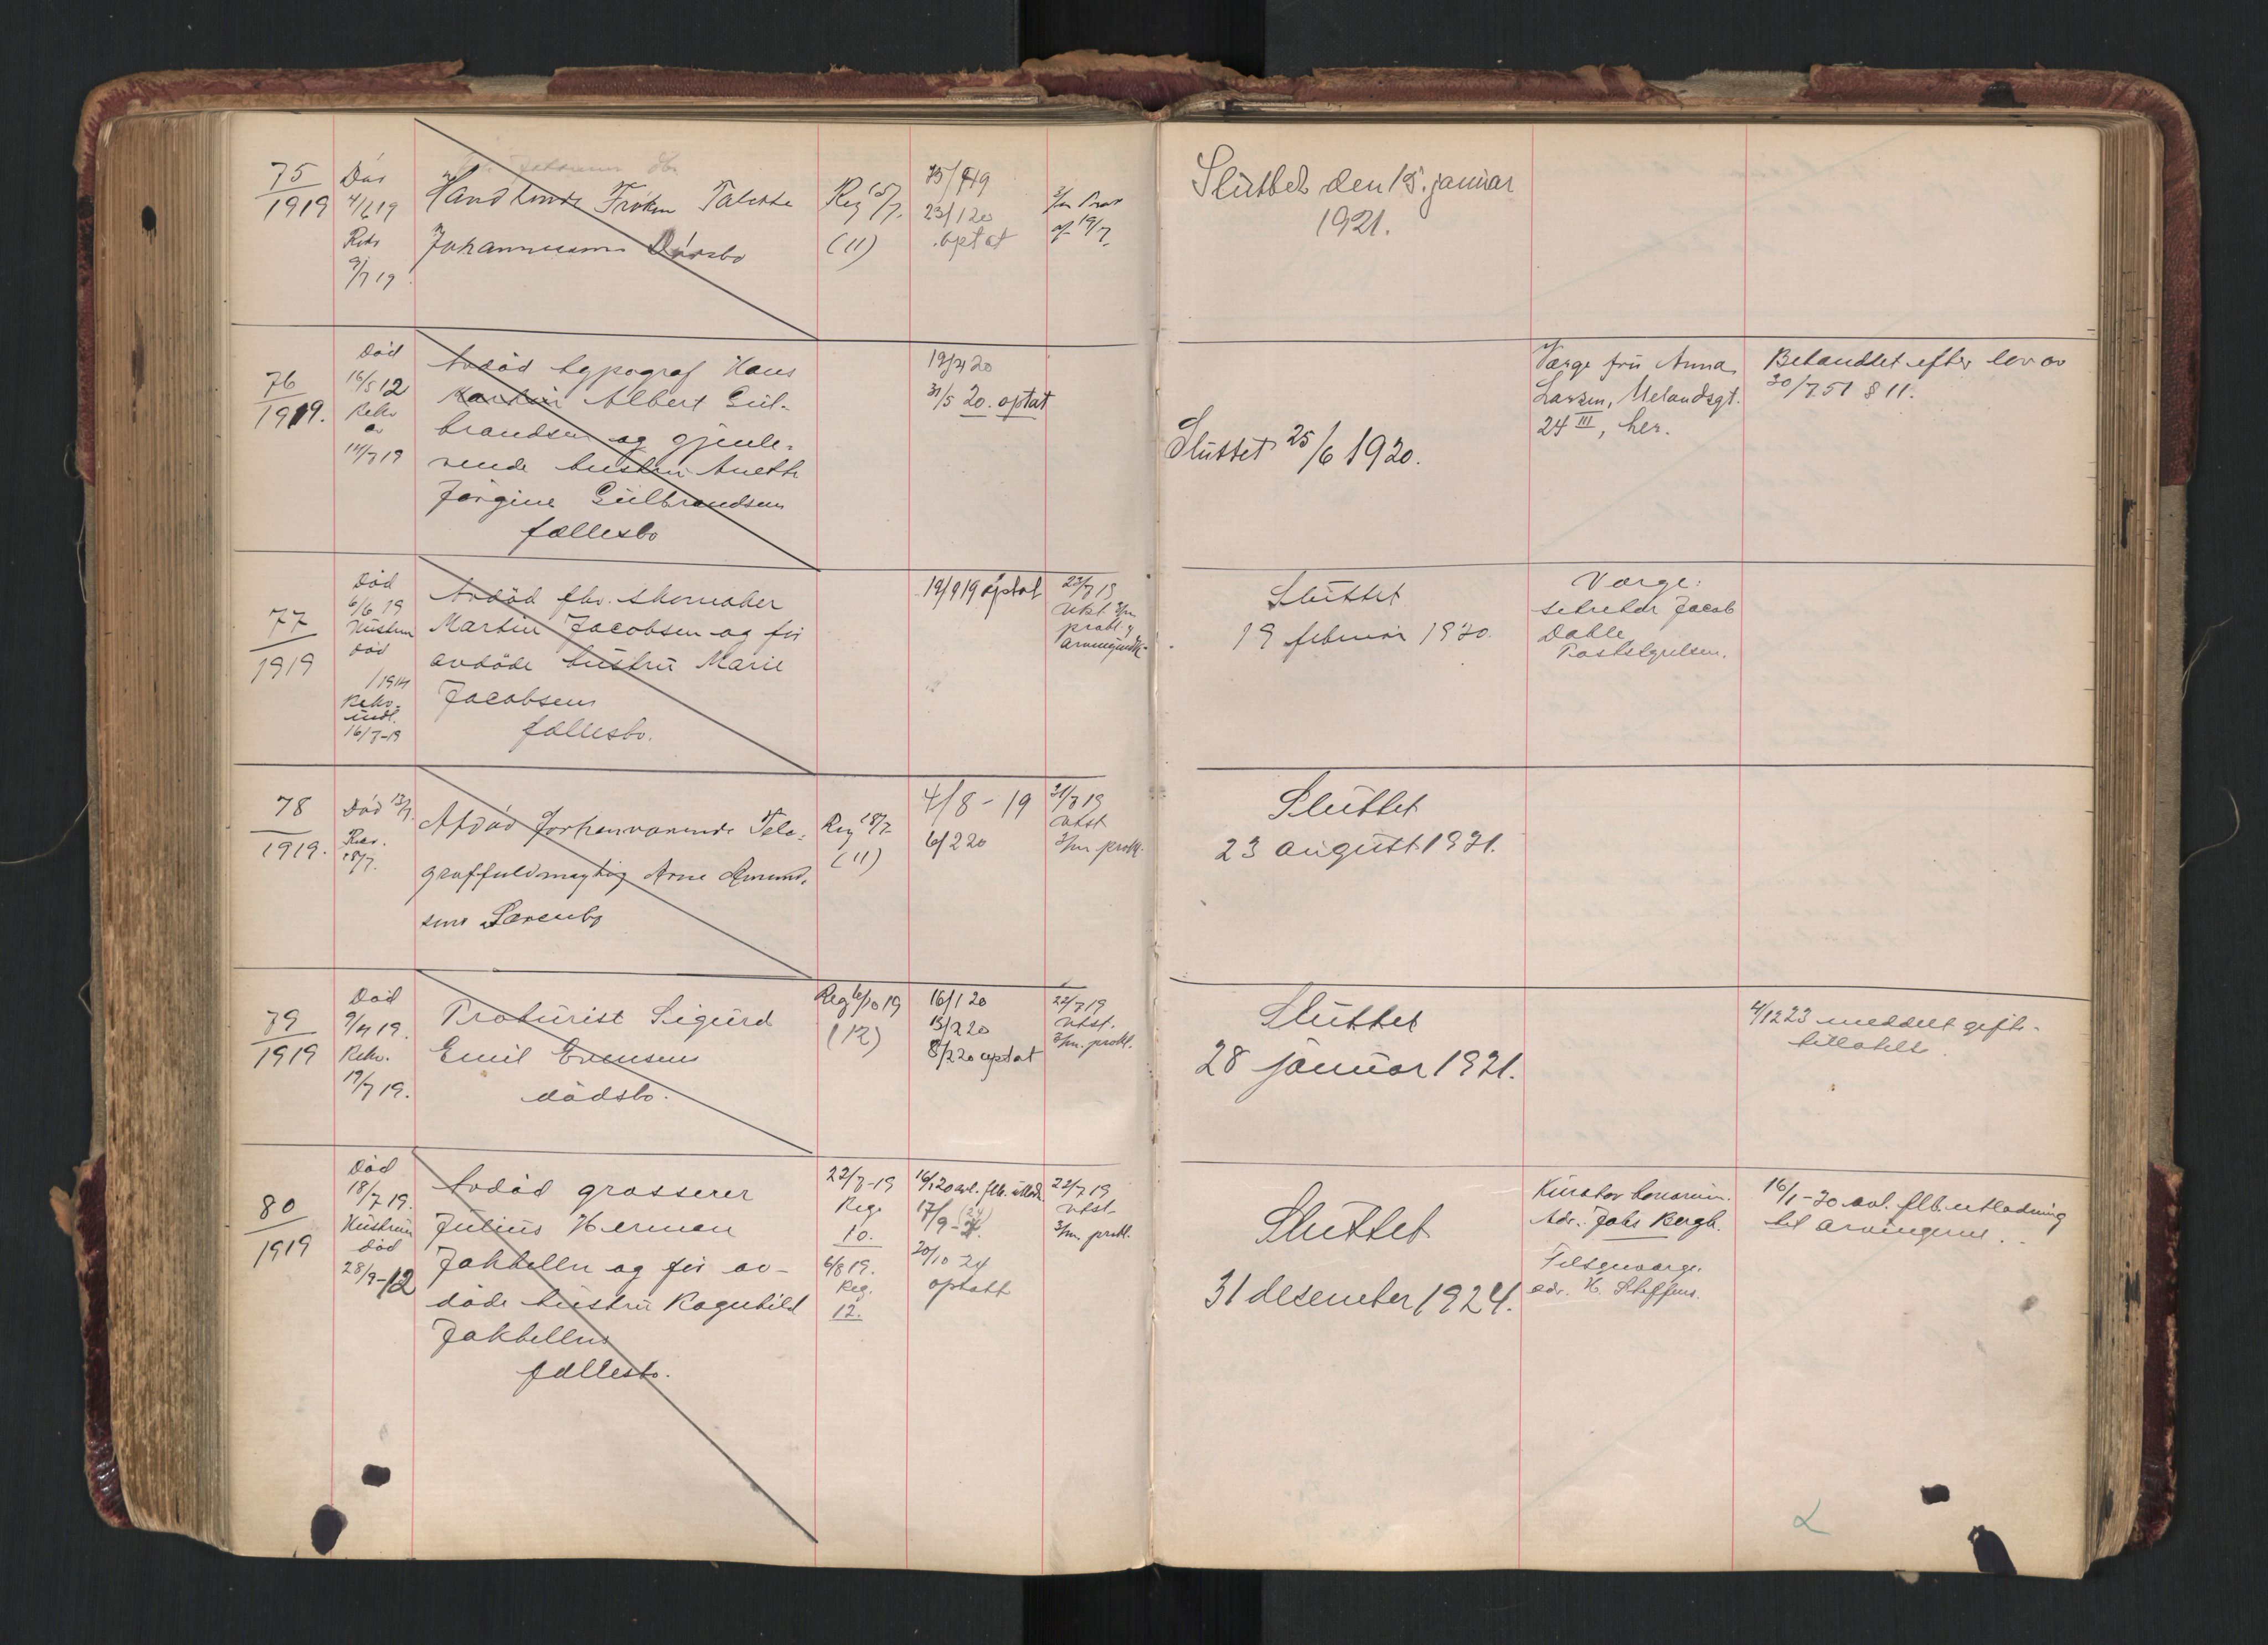 75
1919
Død
4/6 19
Rekv
9/7 19
Handlende Frøken Talette
Johannesens Dødsbo
Reg 15/7.
(11)
15/9 19
23/1 20
optat
3/m Prov
af 19/7.
Sluttet den 15. januar
1921.
76
1919.
Død
16/5 12
Rekv
av
14/7 19
Avdød typograf Hans
Martin Albert Gul-
brandsen og gjenle-
vende hustru Anette
Jørgine Gulbrandsens
fællesbo
19/4 20
31/5 20. optat
Sluttet 25/6 1920.
Værge fru Anna
Larsen, Uelandsgt.
24 III, her.
Behandlet efter lov av
30/7.51 § 11.
77
1919
Død
6/6 19
Hustru
død
/ 1914
Rekv.
indl.
16/7-19
Avdød fhv. skomaker
Martin Jacobsen og før
avdøde hustru Marie
Jacobsens
fællesbo.
19/9 19 optat
23/7 19
utst. 3/m
prokl. y
Sluttet
19 februar 1920.
Værge:
sekretær Jacob
Dahle
Poststyrelsen.
78
1919.
Død 13/7.
Rekv.
18/7.
Afdød Forhenværende Tele-
graffuldmægtig Arne Amund-
sens Særeubo
Reg 18/7
(11)
4/8 - 19
6/2 20
21/7 19
utst
3/m prokl.
Sluttet
23 august 1921.
79
1919
Død
9/4 19.
Rekv.
19/7 19.
Prokurist Sigurd
Emil Evensens
dødsbo.
Reg 6/10 19
(12)
16/1 20
13/2 20
8/2 20 optat
22/7 19
utst.
3/m. prokl.
Sluttet
28 januar 1921.
4/12 23 meddelt gifte-
tillatelse.
80
1919
Død
18/7 19.
Hustrun
død
28/9-12
Avdød grosserer
Julius Herman
Jakhelln og før av-
døde hustru Ragnhild
Jakhellns
fællesbo.
22/7-19
Reg.
10.
6/8 19.
Reg.
12.
16/1 20 avl. flb. utlodn.
17/9-24
20/10 24
optatt
22/7 19
utst
3/m. prokl.
Sluttet
31 desember 1924.
Kurator bonorum.
Adv. Johs Bergh.
Tilsynsværge.
adv. H. Steffens.
16/1-20 avl. flb. utlodning
til arvingerne.